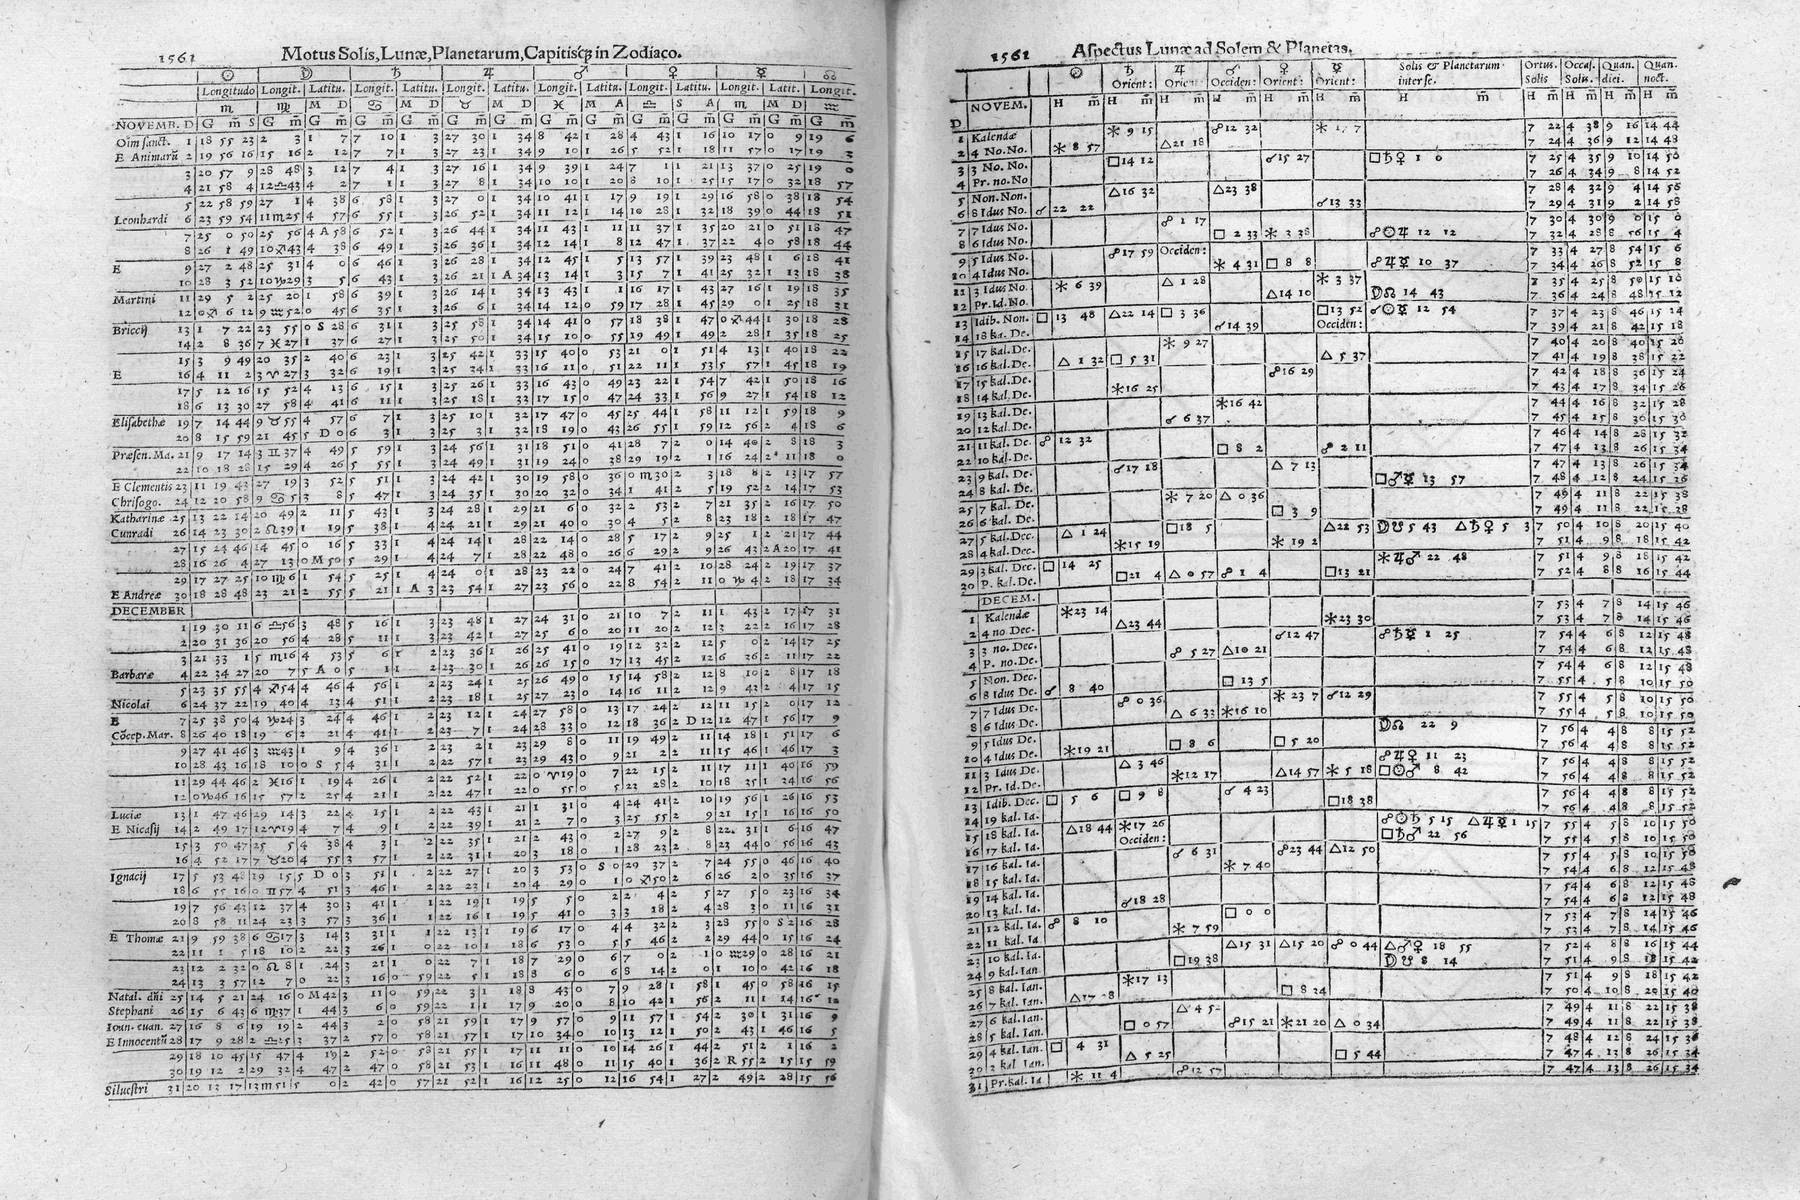 1561 Motus Solis, Lunæ, Planetarum, Capitisq; in Zodiaco.
☉ ☽ ♄ ♃ ♂ ♀ ☿ ☊
Longitudo Longit. Latitu. Longit. Latitu. Longit. Latitu. Longit. Latitu. Longit. Latitu. Longit. Latit. Longit.
♏ ♍ M D ♋ M D ♉ M D ♓ M A ♎ S A ♏ M D ♒
NOVEMB. D G m̃ S G m̃ G m̃ G m̃ G m̃ G m̃ G m̃ G m̃ G m̃ G m̃ G m̃ G m̃ G m̃ G m̃
Oīm sanct. 1 18 55 23 2 3 1 7 7 10 1 3 27 30 1 34 8 42 1 28 4 43 1 16 10 17 0 9 19 6
E Animarū 2 19 56 16 15 16 2 12 7 7 1 3 27 23 1 34 9 10 1 26 5 52 1 18 11 57 0 17 19 3
3 20 57 9 28 48 3 12 7 4 1 3 27 16 1 34 9 39 1 24 7 1 1 21 13 37 0 25 19 0
4 21 58 4 12 ♎ 43 4 2 7 1 1 3 27 8 1 34 10 10 1 20 8 10 1 25 15 17 0 32 18 57
5 22 58 59 27 1 4 38 6 58 1 3 27 0 1 34 10 41 1 17 9 19 1 29 16 58 0 38 18 54
Leonhardi 6 23 59 54 11 ♏ 25 4 57 6 55 1 3 26 52 1 34 11 12 1 14 10 28 1 32 18 39 0 44 18 51
7 25 0 50 25 56 4 A 58 6 52 1 3 26 44 1 34 11 43 1 11 11 37 1 35 20 21 0 51 18 47
8 26 1 49 10 ♐ 43 4 38 6 49 1 3 26 36 1 34 12 14 1 8 12 47 1 37 22 4 0 58 18 44
E 9 27 2 48 25 31 4 0 6 46 1 3 26 28 1 34 12 45 1 5 13 57 1 39 23 48 1 6 18 41
10 28 3 52 10 ♑ 29 3 5 6 43 1 3 26 21 1 A 34 13 14 1 3 15 7 1 41 25 32 1 13 18 38
Martini 11 29 5 2 25 20 1 58 6 39 1 3 26 14 1 34 13 43 1 1 16 17 1 43 27 16 1 19 18 35
12 0 ♐ 6 12 9 ♒ 52 0 45 6 35 1 3 26 6 1 34 14 12 0 59 17 28 1 45 29 0 1 25 18 31
Briccij 13 1 7 22 23 55 0 S 28 6 31 1 3 25 58 1 34 14 41 0 57 18 38 1 47 0 ♐ 44 1 30 18 28
14 2 8 36 7 ♓ 27 1 37 6 27 1 3 25 50 1 34 15 10 0 55 19 49 1 49 2 28 1 35 18 25
15 3 9 49 20 35 2 40 6 23 1 3 25 42 1 33 15 40 0 53 21 0 1 51 4 13 1 40 18 22
E 16 4 11 2 3 ♈ 27 3 32 6 19 1 3 25 34 1 33 16 11 0 51 22 11 1 53 5 57 1 45 18 19
17 5 12 16 15 52 4 13 6 15 1 3 25 26 1 33 16 43 0 49 23 22 1 54 7 42 1 50 18 16
18 6 13 30 27 58 4 41 6 11 1 3 25 18 1 33 17 15 0 47 24 33 1 56 9 27 1 54 18 12
Elisabethæ 19 7 14 44 9 ♉ 55 4 57 6 7 1 3 25 10 1 32 17 47 0 45 25 44 1 58 11 12 1 59 18 9
20 8 15 59 21 45 5 D 0 6 3 1 3 25 3 1 32 18 19 0 43 26 55 1 59 12 56 2 4 18 6
Præsen. Ma. 21 9 17 14 3 ♊ 37 4 49 5 59 1 3 24 56 1 31 18 51 0 41 28 7 2 0 14 40 2 8 18 3
22 10 18 28 15 29 4 26 5 55 1 3 24 49 1 31 19 24 0 38 29 19 2 1 16 24 2 11 18 0
E Clementis 23 11 19 43 27 19 3 52 5 51 1 3 24 42 1 30 19 58 0 36 0 ♏ 30 2 3 18 8 2 13 17 57
Chrisogo. 24 12 20 58 9 ♋ 5 3 8 5 47 1 3 24 35 1 30 20 32 0 34 1 41 2 5 19 52 2 14 17 53
Katharinæ 25 13 22 14 20 49 2 11 5 43 1 3 24 28 1 29 21 6 0 32 2 53 2 7 21 35 2 16 17 50
Cunradi 26 14 23 30 2 ♌ 39 1 19 5 38 1 4 24 21 1 29 21 40 0 30 4 5 2 8 23 18 2 18 17 47
27 15 24 46 14 45 0 16 5 33 1 4 24 14 1 28 22 14 0 28 5 17 2 9 25 1 2 21 17 44
28 16 26 4 27 13 0 M 50 5 29 1 4 24 7 1 28 22 48 0 26 6 29 2 9 26 43 2 A 20 17 41
29 17 27 25 10 ♍ 6 1 54 5 25 1 4 24 0 1 28 23 22 0 24 7 41 2 10 28 24 2 19 17 37
E Andreæ 30 18 28 48 23 21 2 55 5 21 1 A 3 23 54 1 27 23 56 0 22 8 54 2 11 0 ♑ 4 2 18 17 34
DECEMBER
1 19 30 11 6 ♎ 56 3 48 5 16 1 3 23 48 1 27 24 31 0 21 10 7 2 11 1 43 2 17 17 31
2 20 31 36 20 56 4 28 5 11 1 2 23 42 1 27 25 6 0 20 11 20 2 12 3 22 2 16 17 28
3 21 33 1 5 ♏ 16 4 53 5 6 1 2 23 36 1 26 25 41 0 19 12 32 2 12 5 0 2 14 17 25
Barbaræ 4 22 34 27 20 7 5 A 0 5 1 1 2 23 30 1 26 26 15 0 17 13 45 2 12 6 36 2 11 17 22
5 23 35 55 4 ♐ 54 4 46 4 56 1 2 23 24 1 25 26 49 0 15 14 58 2 12 8 10 2 8 17 18
Nicolai 6 24 37 22 19 40 4 13 4 51 1 2 23 18 1 25 27 23 0 14 16 11 2 12 9 42 2 4 17 15
E 7 25 38 50 4 ♑ 24 3 24 4 46 1 2 23 12 1 24 27 58 0 13 17 24 2 12 11 15 2 0 17 12
Cōcep. Mar. 8 26 40 18 19 6 2 21 4 41 1 2 23 7 1 24 28 33 0 12 18 36 2 D 12 12 47 1 56 17 9
9 27 41 46 3 ♒ 43 1 9 4 36 1 2 23 2 1 23 29 8 0 11 19 49 2 11 14 18 1 51 17 6
10 28 43 16 18 10 0 S 5 4 31 1 2 22 57 1 23 29 43 0 9 21 2 2 11 15 46 1 46 17 3
11 29 44 46 2 ♓ 16 1 19 4 26 1 2 22 52 1 22 0 ♈ 19 0 7 22 15 2 11 17 11 1 40 16 59
12 0 ♑ 46 16 15 57 2 25 4 21 1 2 22 47 1 22 0 55 0 5 23 28 2 10 18 25 1 34 16 56
Luciæ 13 1 47 46 29 14 3 22 4 15 1 2 22 43 1 21 1 31 0 4 24 41 2 10 19 56 1 26 16 53
E Nicasij 14 2 49 17 12 ♈ 19 4 7 4 9 1 2 22 39 1 21 2 7 0 3 25 55 2 9 21 15 1 16 16 50
15 3 50 47 25 5 4 38 4 3 1 2 22 35 1 21 2 43 0 2 27 9 2 8 22 31 1 6 16 47
16 4 52 17 7 ♉ 20 4 55 3 57 1 2 22 31 1 20 3 18 0 1 28 23 2 8 23 44 0 56 16 43
Ignacij 17 5 53 48 19 15 5 D 0 3 51 1 2 22 27 1 20 3 53 0 S 0 29 37 2 7 24 55 0 46 16 40
18 6 55 16 0 ♊ 57 4 51 3 46 1 1 2 22 23 1 20 4 29 0 1 0 ♐ 50 2 6 26 2 0 35 16 37
19 7 56 43 12 37 4 30 3 41 1 1 22 19 1 19 5 5 0 2 2 4 2 5 27 5 0 23 16 34
20 8 58 11 24 23 3 57 3 36 1 1 22 16 1 19 5 41 0 3 3 18 2 4 28 3 0 11 16 31
E Thomæ 21 9 59 38 6 ♋ 17 3 14 3 31 1 1 22 13 1 19 6 17 0 4 4 32 2 3 28 55 0 S 2 16 28
22 11 1 5 18 10 2 22 3 26 1 0 22 10 1 18 6 53 0 5 5 46 2 2 29 44 0 15 16 24
23 12 2 32 0 ♌ 8 1 24 3 21 1 0 22 7 1 18 7 29 0 6 7 0 2 1 0 ♒ 29 0 28 16 21
24 13 3 57 12 7 0 22 3 16 0 59 22 5 1 18 8 6 0 6 8 14 2 0 1 10 0 42 16 18
Natal. dñi 25 14 5 21 24 16 0 M 42 3 11 0 59 22 3 1 18 8 43 0 7 9 28 1 58 1 45 0 58 16 15
Stephani 26 15 6 43 6 ♍ 37 1 44 3 6 0 59 22 1 1 17 9 20 0 8 10 42 1 56 2 11 1 14 16 12
Ioan. euan. 27 16 8 6 19 19 2 44 3 2 0 58 21 59 1 17 9 57 0 9 11 57 1 54 2 30 1 31 16 9
E Innocentū 28 17 9 28 2 ♎ 25 3 37 2 57 0 58 21 57 1 17 10 34 0 10 13 12 1 50 2 43 1 46 16 5
29 18 10 45 15 47 4 19 2 52 0 58 21 55 1 17 11 11 0 10 14 26 1 44 2 51 2 1 16 2
30 19 12 2 29 32 4 47 2 47 0 58 21 53 1 16 11 48 0 11 15 40 1 36 2 R 55 2 15 15 59
Siluestri 31 20 13 17 13 ♏ 51 5 0 2 42 0 57 21 52 1 16 12 25 0 12 16 54 1 27 2 49 2 28 15 56
1561 Aspectus Lunæ ad Solem & Planetas.
☉ ♄ ♃ ♂ ♀ ☿ Solis & Planetarum interse. Ortus Solis Occas. Solis. Quan. diei. Quan. noct.
Orient: Orien: Occiden: Orient: Orient:
D NOVEM. H m̃ H m̃ H m̃ H m̃ H m̃ H m̃ H m̃ H m̃ H m̃ H m̃ H m̃
1 Kalendæ ⚹ 9 15 ☍ 12 32 7 22 4 38 9 16 14 44
2 4 No. No. ⚹ 8 57 △ 21 18 7 24 4 36 9 12 14 48
3 3 No. No. □ 14 12 ☌ 15 27 □ ♄ ♀ 1 0 7 25 4 35 9 10 14 50
4 Pr. no. No 7 26 4 34 9 8 14 52
5 Non. Non. △ 16 32 △ 23 38 7 28 4 32 9 4 14 56
6 8 Idus No. ☌ 22 22 ☌ 13 33 7 29 4 31 9 2 14 58
7 7 Idus No. ☍ 1 17 7 30 4 30 9 0 15 0
8 6 Idus No. □ 2 33 ⚹ 3 38 ☍ ☉ ♃ 12 12 7 32 4 28 8 56 15 4
9 5 Idus No. ☍ 17 59 Occiden: 7 33 4 27 8 54 15 6
10 4 Idus No. ⚹ 4 31 □ 8 8 ☍ ♃ ☿ 10 37 7 34 4 26 8 52 15 8
11 3 Idus No. ⚹ 6 39 △ 1 28 ⚹ 3 37 7 35 4 25 8 50 15 10
12 Pr. Id. No. △ 14 10 ☽ ☊ 14 43 7 36 4 24 8 48 15 12
13 Idib. Non. □ 13 48 △ 22 14 □ 3 36 □ 13 52 ☌ ☉ ☿ 12 54 7 37 4 23 8 46 15 14
14 18 ka. De. ☌ 14 39 Occiden: 7 39 4 21 8 42 15 18
15 17 kal. De. ⚹ 9 27 7 40 4 20 8 40 15 20
16 16 kal. De. △ 1 32 □ 5 31 △ 5 37 7 41 4 19 8 38 15 22
17 15 kal. De. ☍ 16 29 7 42 4 18 8 36 15 24
18 14 kal. De. ⚹ 16 25 7 43 4 17 8 34 15 26
19 13 kal. De. ⚹ 16 42 7 44 4 16 8 32 15 28
20 12 kal. De. ☌ 6 37 7 45 4 15 8 30 15 30
21 11 kal. De. ☍ 12 32 7 46 4 14 8 28 15 32
22 10 kal. De. □ 8 2 ☍ 2 11 7 47 4 13 8 26 15 34
23 9 kal. De. ☌ 17 18 △ 7 13 7 47 4 13 8 26 15 34
24 8 kal. De. □ ♂ ☿ 13 57 7 48 4 12 8 24 15 36
25 7 kal. De. ⚹ 7 20 △ 0 36 7 49 4 11 8 22 15 38
26 6 kal. De. □ 3 9 7 49 4 11 8 22 15 38
27 5 kal. Dec. △ 1 24 □ 18 5 △ 22 53 ☽ ☋ 5 43 △ ♄ ♀ 5 3 7 50 4 10 8 20 15 40
28 4 kal. Dec. ⚹ 15 19 ⚹ 19 2 7 51 4 9 8 18 15 42
29 3 kal. Dec. □ 14 25 ⚹ ♃ ♂ 22 48 7 51 4 9 8 18 15 42
30 P. kal. De. □ 21 4 △ 0 57 ☍ 1 4 □ 13 21 7 52 4 8 8 16 15 44
DECEM.
1 Kalendæ ⚹ 23 14 7 53 4 7 8 14 15 46
2 4 no Dec. △ 23 44 ⚹ 23 30 7 53 4 7 8 14 15 46
3 3 no. Dec. ☌ 12 47 ☍ ♄ ☿ 1 25 7 54 4 6 8 12 15 48
4 P. no. De. ☍ 5 27 △ 10 21 7 54 4 6 8 12 15 48
5 Non. Dec. □ 13 5 7 54 4 6 8 12 15 48
6 8 Idus De. ☌ 8 40 ⚹ 23 7 ☌ 12 29 7 55 4 5 8 10 15 50
7 7 Idus De. ☍ 0 36 7 55 4 5 8 10 15 50
8 6 Idus De. △ 6 33 ⚹ 16 10 7 55 4 5 8 10 15 50
9 5 Idus De. □ 8 6 □ 5 20 ☽ ☊ 22 9 7 56 4 4 8 8 15 52
10 4 Idus De. ⚹ 19 21 7 56 4 4 8 8 15 52
11 3 Idus De. △ 3 46 ☍ ♃ ♀ 11 23 7 56 4 4 8 8 15 52
12 Pr. Id. De. ⚹ 12 17 △ 14 57 ⚹ 5 18 □ ☉ ♂ 8 42 7 56 4 4 8 8 15 52
13 Idib. Dec. □ 5 6 □ 9 8 ☌ 4 23 7 56 4 4 8 8 15 52
14 19 kal. Ia. □ 18 38 7 56 4 4 8 8 15 52
15 18 kal. Ia. △ 18 44 ⚹ 17 26 ☍ ☉ ♄ 5 15 △ ♃ ☿ 1 15 7 55 4 5 8 10 15 50
16 17 kal. Ia. Occiden: □ ♄ ♂ 22 56 7 55 4 5 8 10 15 50
17 16 kal. Ia. ☌ 6 31 ☍ 23 44 △ 12 50 7 55 4 5 8 10 15 50
18 15 kal. Ia. ⚹ 7 40 7 54 4 6 8 12 15 48
19 14 kal. Ia. 7 54 4 6 8 12 15 48
20 13 kal. Ia. ☌ 18 28 7 54 4 6 8 12 15 48
21 12 kal. Ia. ☍ 8 10 □ 0 0 7 53 4 7 8 14 15 46
22 11 kal. Ia. ⚹ 7 59 7 53 4 7 8 14 15 46
23 10 kal. Ia. △ 15 31 △ 15 20 ☍ 0 44 △ ♂ ♀ 18 55 7 52 4 8 8 16 15 44
24 9 kal. Ian. □ 19 38 ☽ ☋ 8 14 7 51 4 9 8 18 15 42
25 8 kal. Ian. ⚹ 17 13 7 51 4 9 8 18 15 42
26 7 kal. Ian. △ 17 8 □ 8 24 7 50 4 10 8 20 15 40
27 6 kal. Ian. △ 4 52 7 49 4 11 8 22 15 38
28 5 kal. Ian. □ 0 57 ☍ 15 21 ⚹ 21 20 △ 0 34 7 49 4 11 8 22 15 38
29 4 kal. Ian. □ 4 31 7 48 4 12 8 24 15 36
30 2 kal. Ian. △ 5 25 □ 5 44 7 47 4 13 8 26 15 34
31 Pr. kal. Ia ⚹ 11 4 ☍ 12 57 7 47 4 13 8 26 15 34